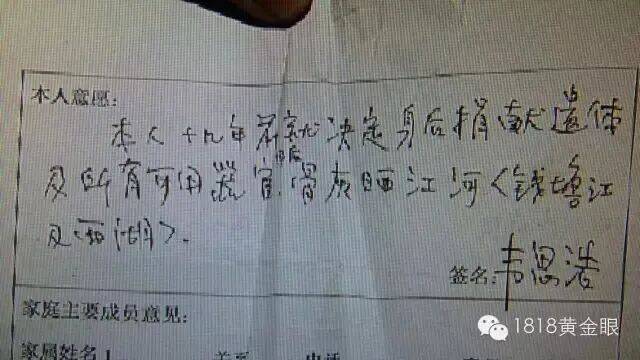 本人意愿:
本人十九年前就决定身后捐献遗体
及所有可用器官,骨灰晒江河<钱塘江
及西湖>.
签名:韦思浩
家庭主要成员意见:
家属姓名1 关系 电话
1818黄金眼